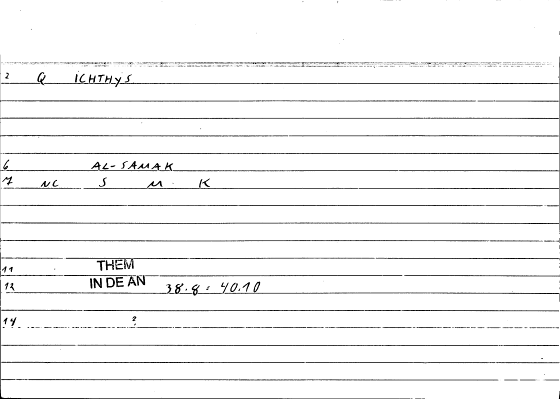 2 Q ICHTHYS
6 AL-SAMAK
7 NC S M K
11 THEM
12 IN DE AN 38.8 = 40.10
14 ?